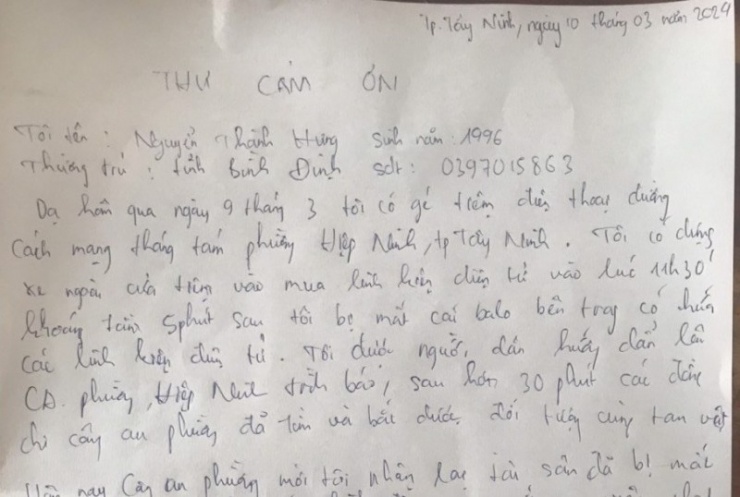 Tp. Tây Ninh, ngày 10 tháng 03 năm 2024
THƯ CẢM ƠN
Tôi tên : Nguyễn Thành Hưng sinh năm : 1996
Thường trú : tỉnh Bình Định sdt : 0397015863
Dạ hôm qua ngày 9 tháng 3 tôi có gé tiệm điện thoại đường
Cách mạng tháng tám phường Hiệp Ninh, tp Tây Ninh. Tôi có dựng
xe ngoài cửa tiệm vào mua linh kiện điện tử vào lúc 11h30'
khoảng tầm 5 phút sau tôi bị mất cái balo bên trong có
các linh kiện điện tử. Tôi được người dân hướng dẫn lên
CA. phường Hiệp Ninh trình báo, sau hơn 30 phút các đồng
chí công an phường đã tìm và bắt được đối tượng cùng tan vật
nay Công an phường mời tôi nhận lại tài sản đã bị mất